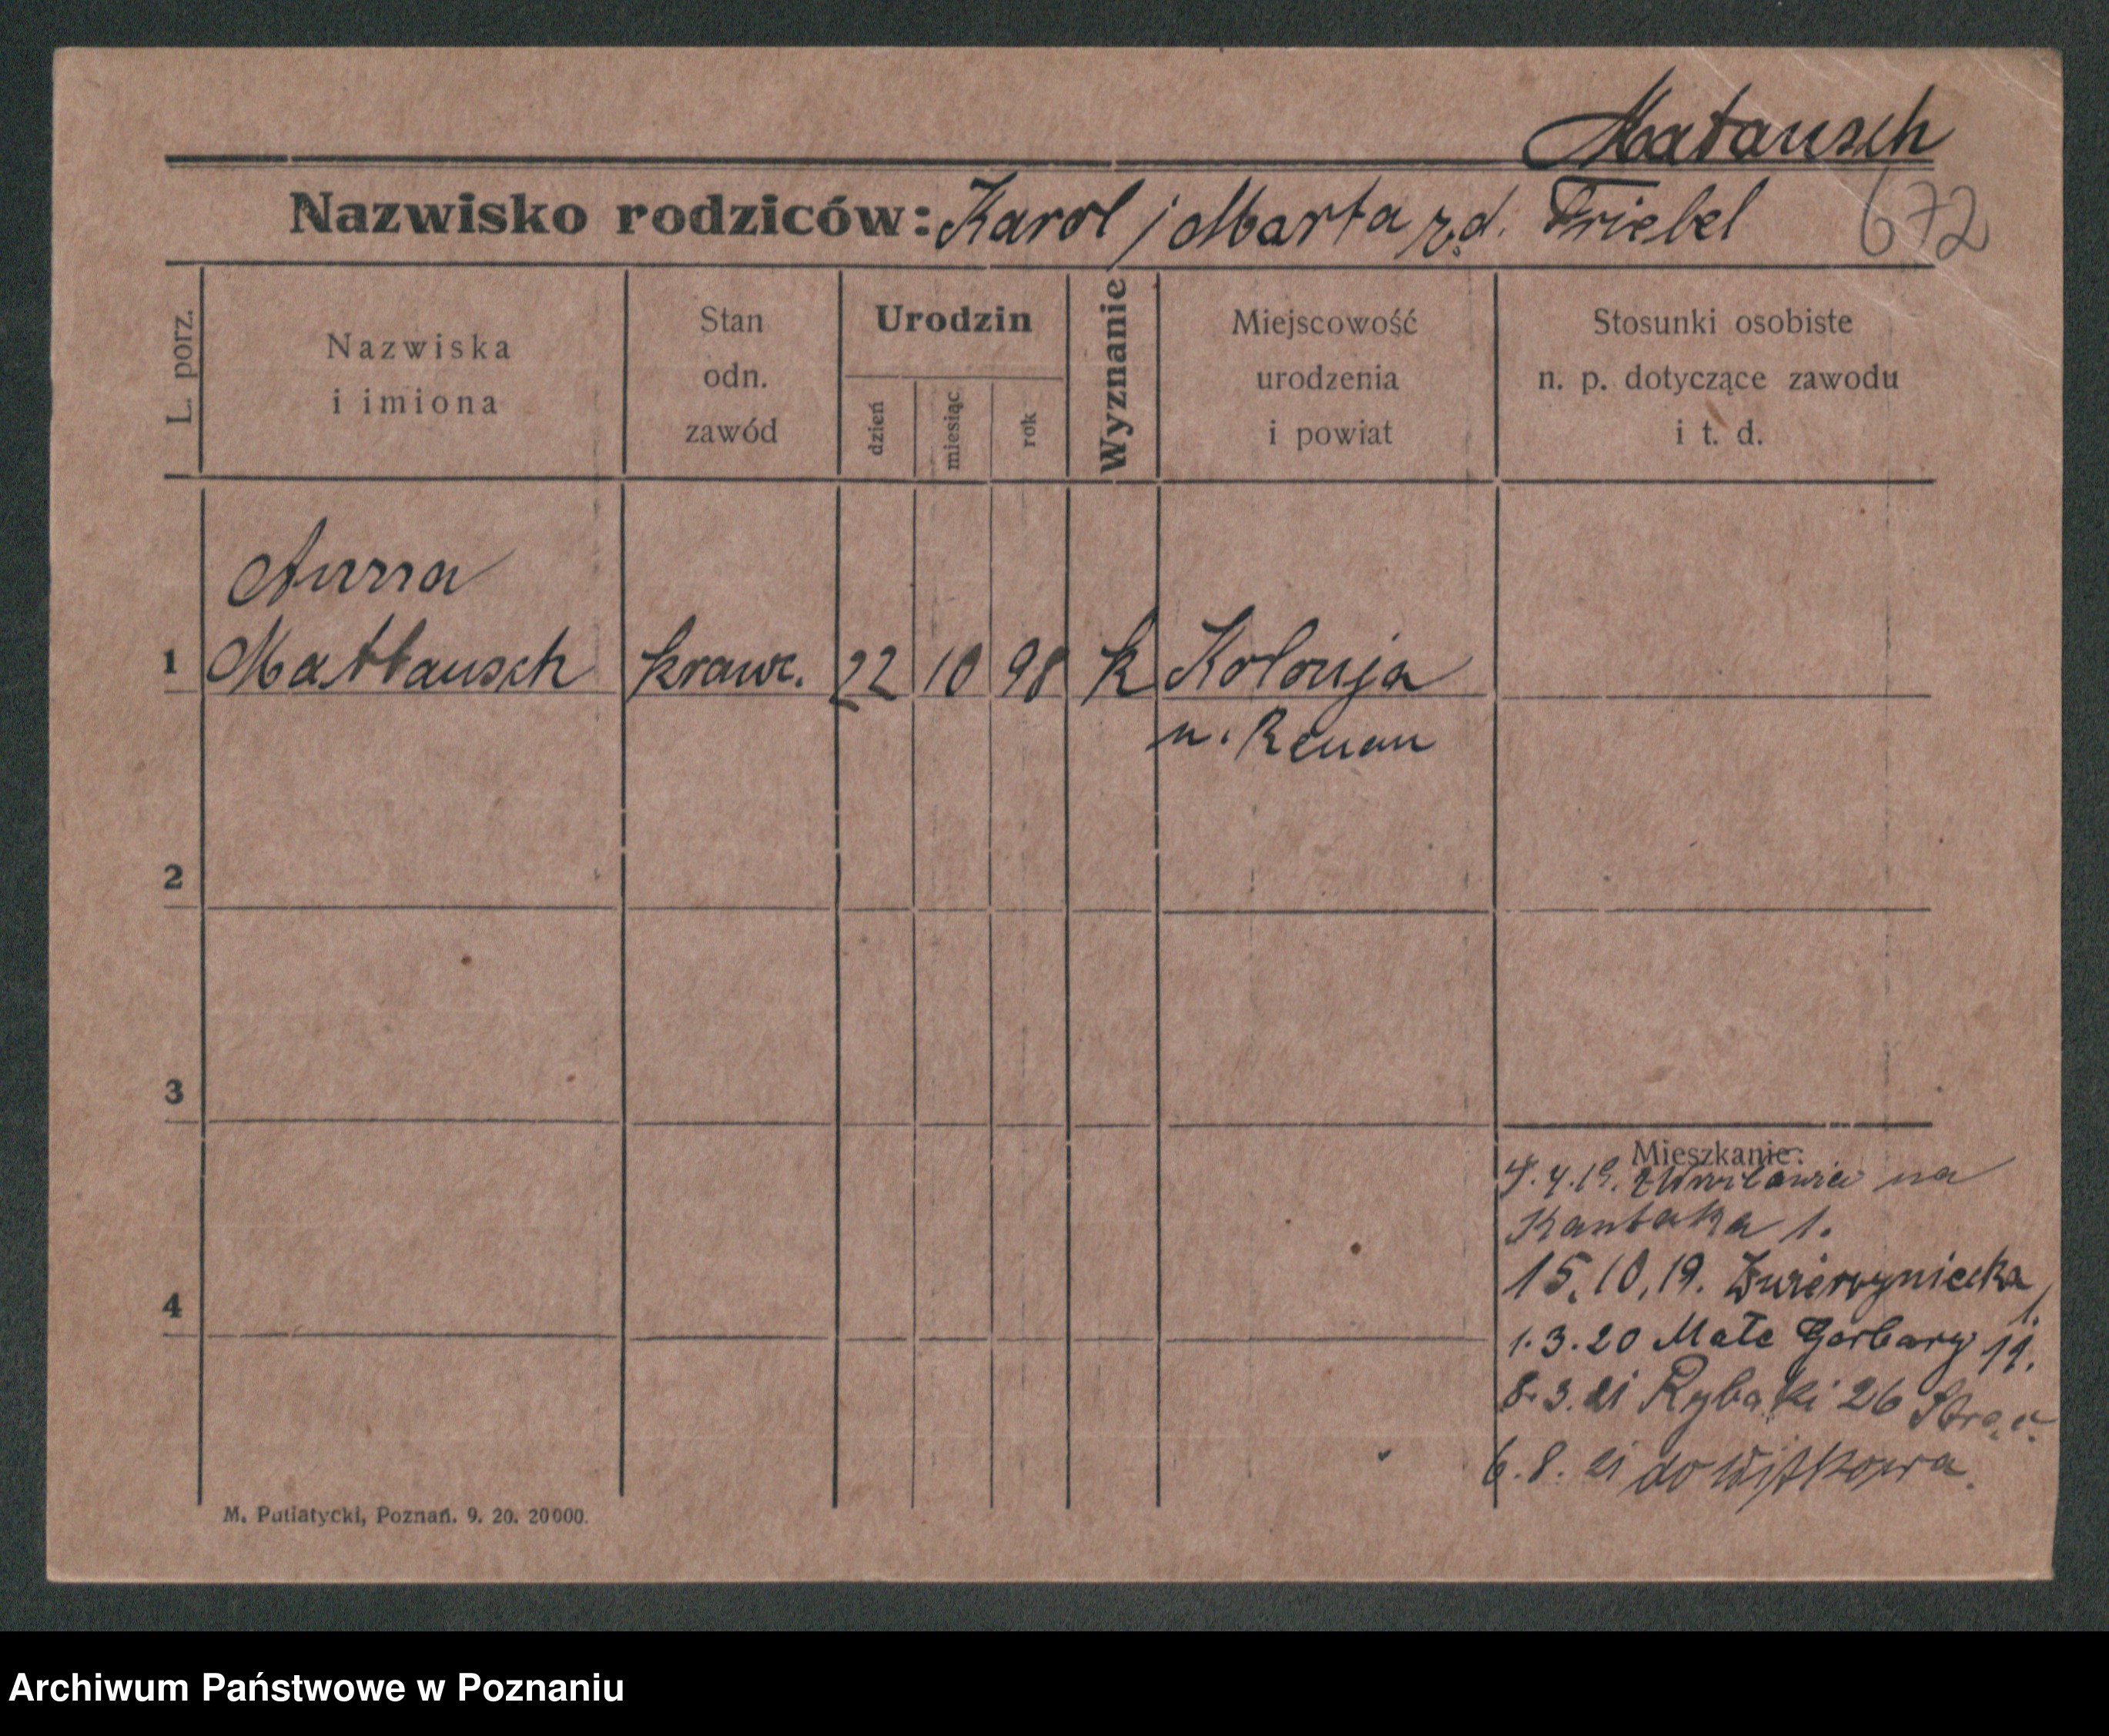 Matausch
Nazwisko rodziców: Karol i Marta r.d. Friebel 672
L. porz.
Nazwiska
i imiona
Stan
odn.
zawód
Urodzin
dzień
miesiąc
rok
Wyznanie
Miejscowość
urodzenia
i powiat
Stosunki osobiste
n. p. dotyczące zawodu
i t. d.
Anna
1 Mattausch krawc. 22 10 98 k Kolonja
n. Renan
2
3
Mieszkanie:
na
Kantaka 1.
4
15.10.19. Zwierzyniecka
1.
1.3.20 Małe Garbary 11.
8.3.21 Rybaki 26
6.8.21 do Witkowa.
M. Putiatycki, Poznań. 9. 20. 20000.
Archiwum Państwowe w Poznaniu